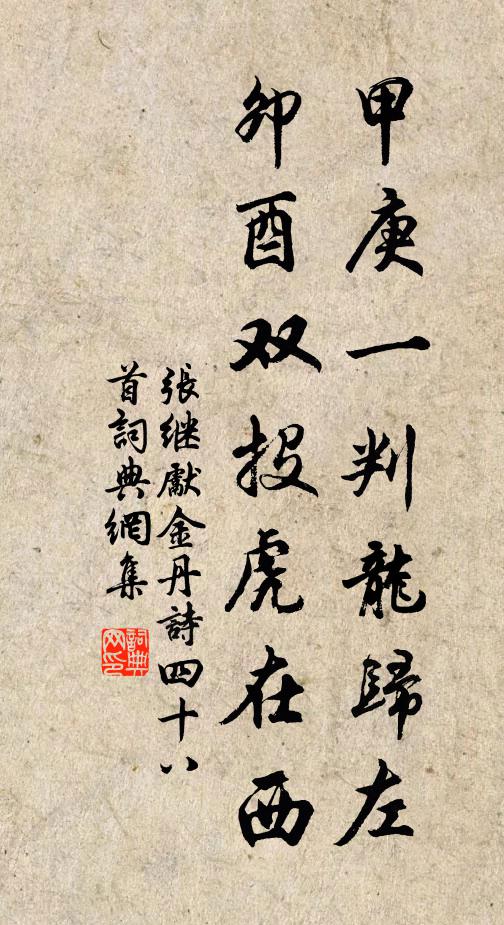 甲庚一判龍歸左
卯酉双投虎在西
張继獻金丹詩四十八
首詞典網集
詞典网印